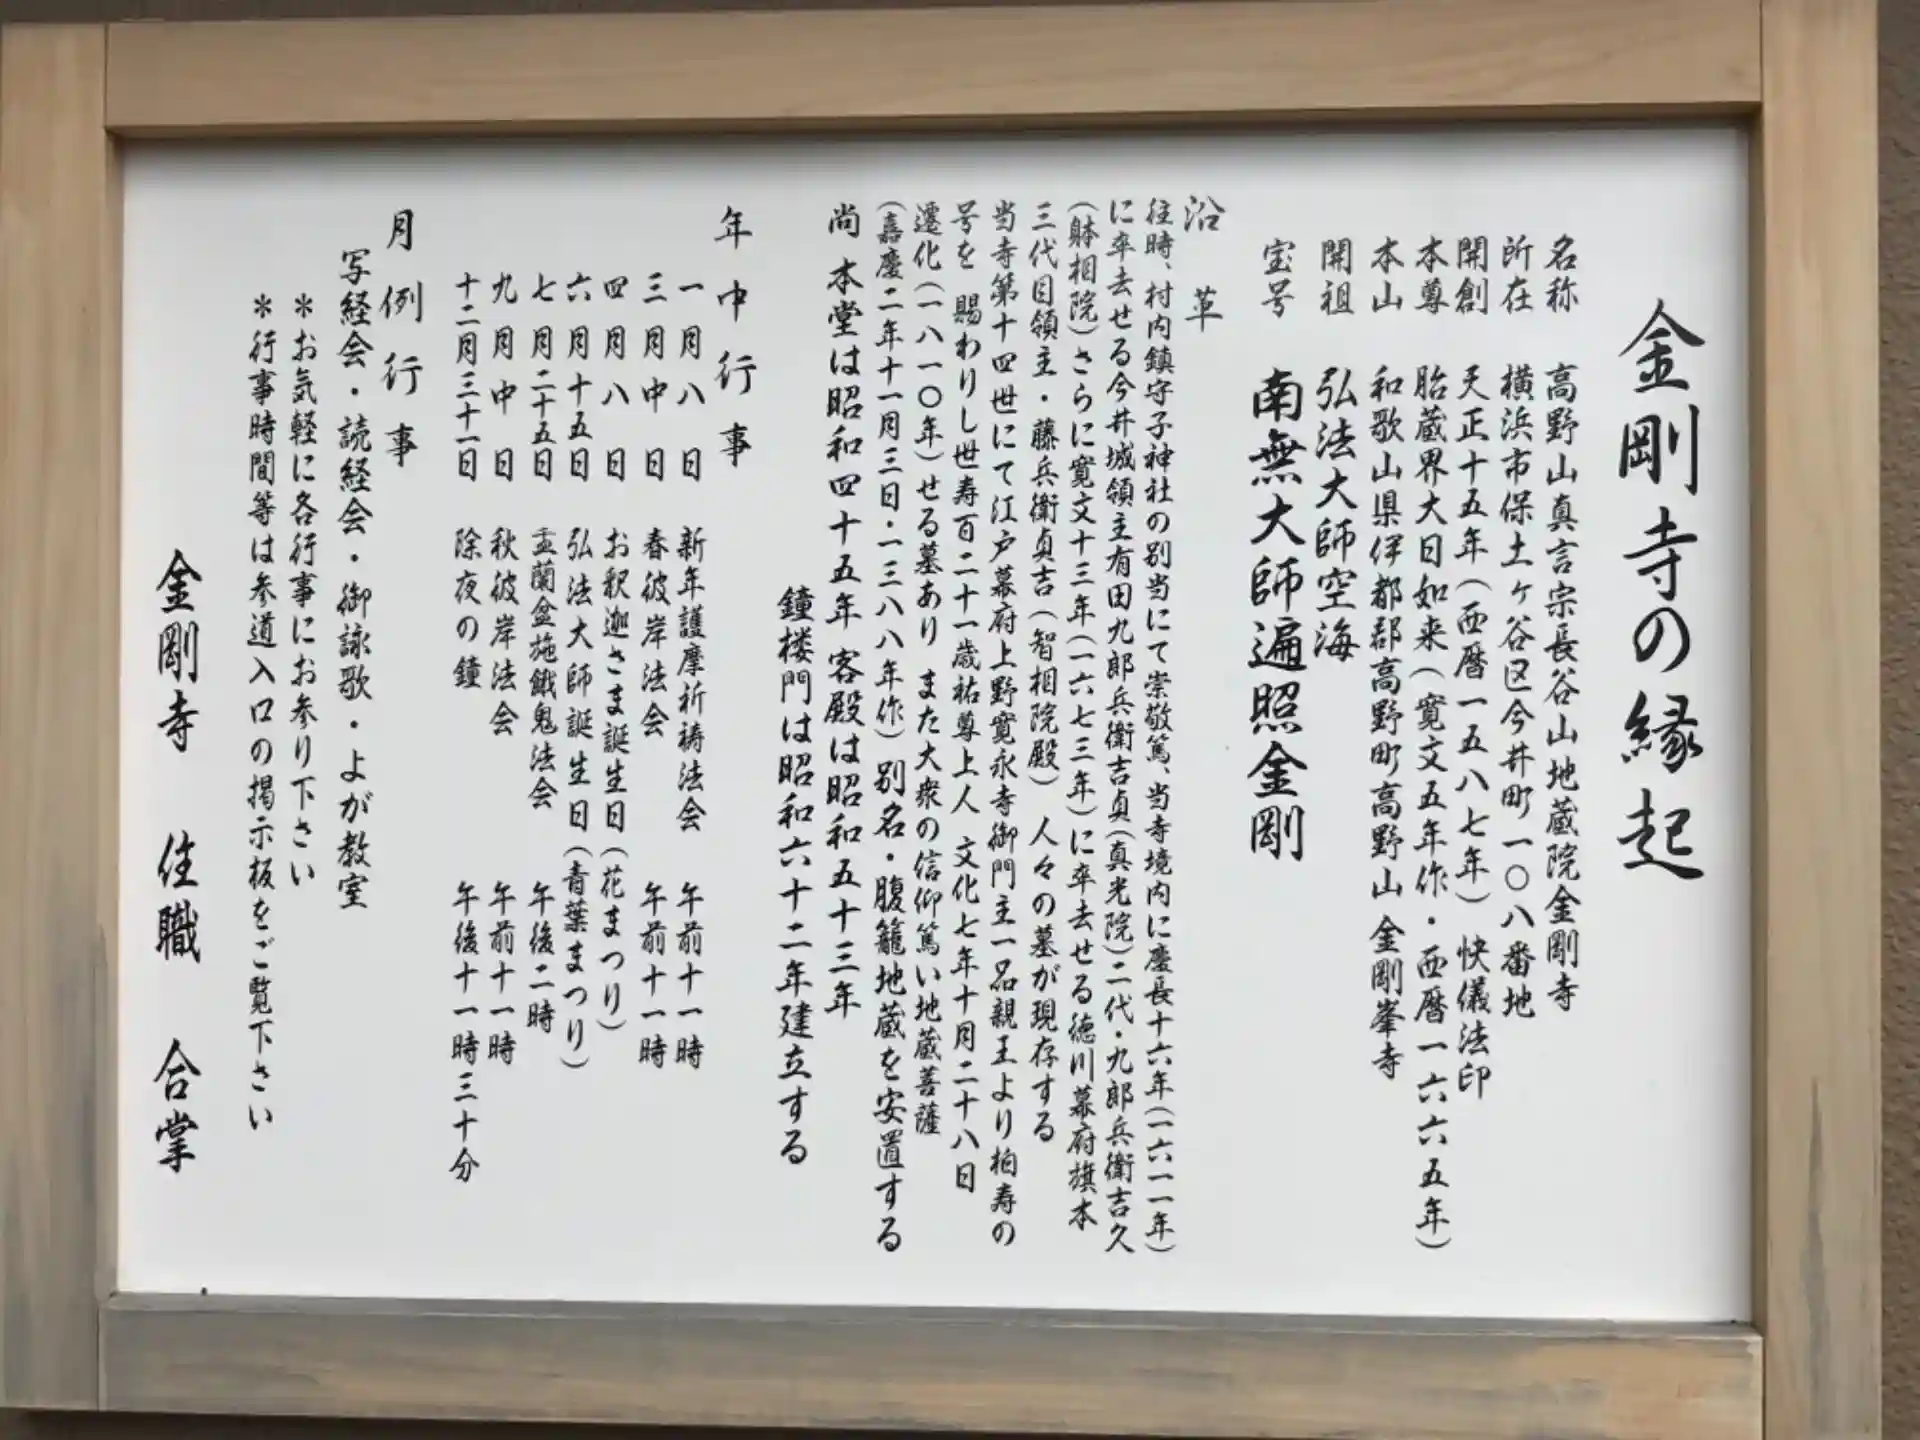 金剛寺の縁起
名称 高野山真言宗長谷山地蔵院金剛寺
所在 横浜市保土ヶ谷区今井町一〇八番地
開創 天正十五年(西暦一五八七年) 快儀法印
本尊 胎蔵界大日如来(寛文五年作・西暦一六六五年)
本山 和歌山県伊都郡高野町高野山 金剛峯寺
開祖 弘法大師空海
宝号 南無大師遍照金剛
沿革
往時、村内鎮守子神社の別当にて崇敬篤、当寺境内に慶長十六年(一六一一年)
に卒去せる今井城領主有田九郎兵衛吉貞(真光院)二代・九郎兵衛吉久
(躰相院)さらに寛文十三年(一六七三年)に卒去せる徳川幕府旗本
三代目領主・藤兵衛貞吉(智相院殿) 人々の墓が現存する
当寺第十四世にて江戸幕府上野寛永寺御門主一品親王より柏寿の
号を 賜わりし世寿百二十一歳祐尊上人 文化七年十月二十八日
遷化(一八一〇年)せる墓あり また大衆の信仰篤い地蔵菩薩
(嘉慶二年十一月三日・一三八八年作)別名・腹籠地蔵を安置する
尚 本堂は昭和四十五年 客殿は昭和五十三年
鐘楼門は昭和六十二年建立する
年中行事
一月八日 新年護摩祈祷法会 午前十一時
三月中日 春彼岸法会 午前十一時
四月八日 お釈迦さま誕生日(花まつり)
六月十五日 弘法大師誕生日(青葉まつり)
七月二十五日 盂蘭盆施餓鬼法会 午後二時
九月中日 秋彼岸法会 午前十一時
十二月三十一日 除夜の鐘 午後十一時三十分
月例行事
写経会・読経会・御詠歌・よが教室
＊お気軽に各行事にお参り下さい
＊行事時間等は参道入口の掲示板をご覧下さい
金剛寺 住職 合掌